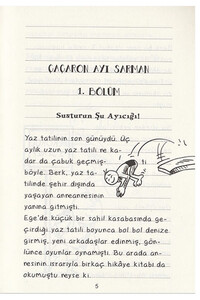 GAGARON AYI SARMAN
1. BÖLÜM
Susturun Şu Ayıcığı!
Yaz tatilinin son günüydü. Üç
aylık uzun yaz tatili ne ka-
dar da çabuk geçmiş-
ti böyle. Berk, yaz ta-
tilinde şehir dışında
yaşayan anneannesinin
yanına gitmişti.
Ege'de küçük bir sahil kasabasında ge-
çirdiği yaz tatili boyunca bol bol denize
girmiş, yeni arkadaşlar edinmiş, gön-
lünce oyunlar oynamıştı. Bu arada an-
nesinin ısrarıyla birkaç hikâye kitabı da
okumuştu neyse ki.
5